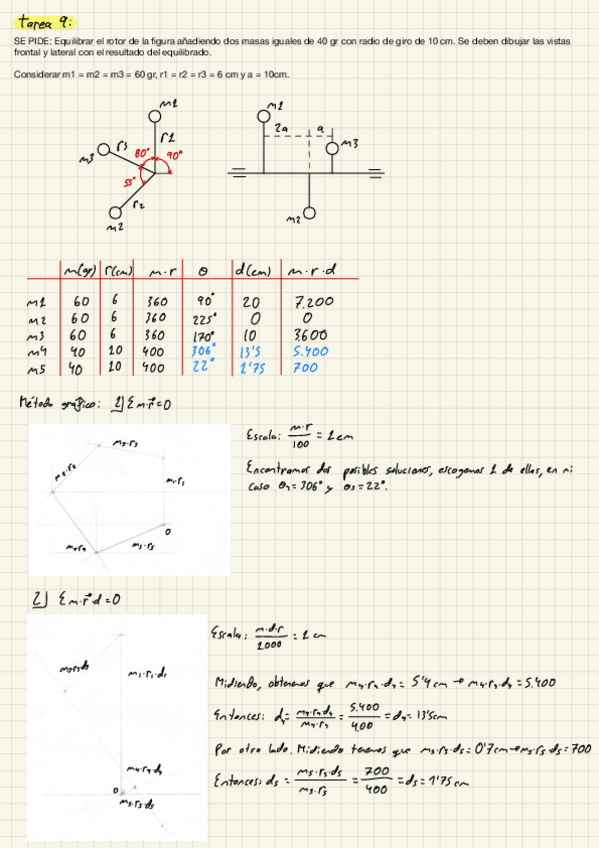 tarea 9:
SE PIDE: Equilibrar el rotor de la figura añadiendo dos masas iguales de 40 gr con radio de giro de 10 cm. Se deben dibujar las vistas
frontal y lateral con el resultado del equilibrado.
Considerar m1 = m2 = m3 = 60 gr, r1 = r2 = r3 = 6 cm y a = 10cm.
m1
r1
r3
m3
80°
90°
55°
r2
m2
m1
2a
a
m3
m2
m(gr) r(cm) m·r θ d(cm) m·r·d
m1 60 6 360 90° 20 7.200
m2 60 6 360 225° 0 0
m3 60 6 360 170° 10 3600
m4 40 10 400 306° 13'5 5.400
m5 40 10 400 22° 1'75 700
Método gráfico: 1) Σm·r⃗=0
m3·r3
m2·r2
m1·r1
0
m4r4
m5·r5
Escala: m·r/100 = 1cm
Encontramos dos posibles soluciones, escogemos 1 de ellas, en mi
caso θ4=306° y θ5=22°.
2) Σm·r⃗·d=0
m3r3d3
m1·r1·d1
m4·r4·d4
0
m5·r5·d5
Escala: m·d·r/1000 = 1cm
Midiendo, obtenemos que m4·r4·d4 = 5'4 cm → m4·r4·d4 = 5.400
Entonces: d4 = m4·r4·d4/m4·r4 = 5.400/400 = d4 = 13'5cm
Por otro lado. Midiendo tenemos que m5·r5·d5 = 0'7cm → m5·r5·d5 = 700
Entonces: d5 = m5·r5·d5/m5·r5 = 700/400 = d5 = 1'75cm